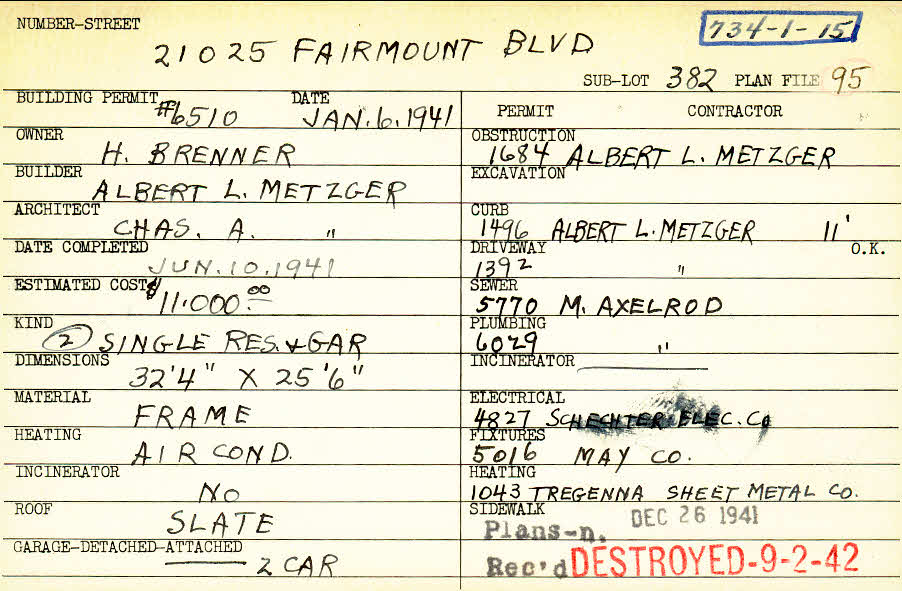 NUMBER-STREET
734-1-15
21025 FAIRMOUNT BLVD
SUB-LOT 382 PLAN FILE 95
BUILDING PERMIT #6510 DATE JAN. 6. 1941
OWNER H. BRENNER
BUILDER ALBERT L. METZGER
ARCHITECT CHAS. A. "
DATE COMPLETED JUN. 10. 1941
ESTIMATED COST $11.000.00
KIND (2) SINGLE RES. & GAR
DIMENSIONS 32'4" X 25'6"
MATERIAL FRAME
HEATING AIR COND.
INCINERATOR NO
ROOF SLATE
GARAGE-DETACHED-ATTACHED 2 CAR
PERMIT CONTRACTOR
OBSTRUCTION 1684 ALBERT L. METZGER
EXCAVATION
CURB 1496 ALBERT L. METZGER 11'
DRIVEWAY 1392 " O.K.
SEWER 5770 M. AXELROD
PLUMBING 6029 "
INCINERATOR
ELECTRICAL 4827 SCHECHTER ELEC. Co
FIXTURES 5016 MAY CO.
HEATING 1043 TREGENNA SHEET METAL CO.
SIDEWALK DEC 26 1941
Plans-n.
Rec'd DESTROYED-9-2-42